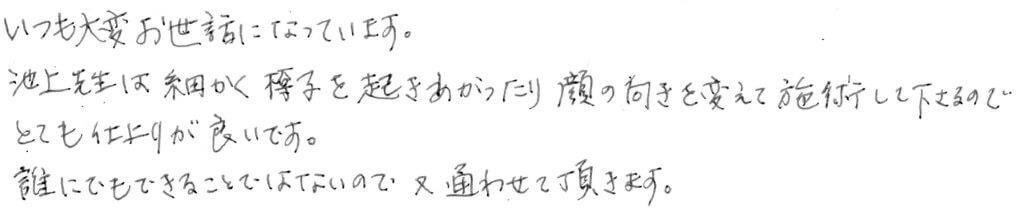 いつも大変お世話になっています。
池上先生は細かく椅子を起きあがったり顔の向きを変えて施術して下さるので
とても仕上りが良いです。
誰にでもできることではないので又通わせて頂きます。